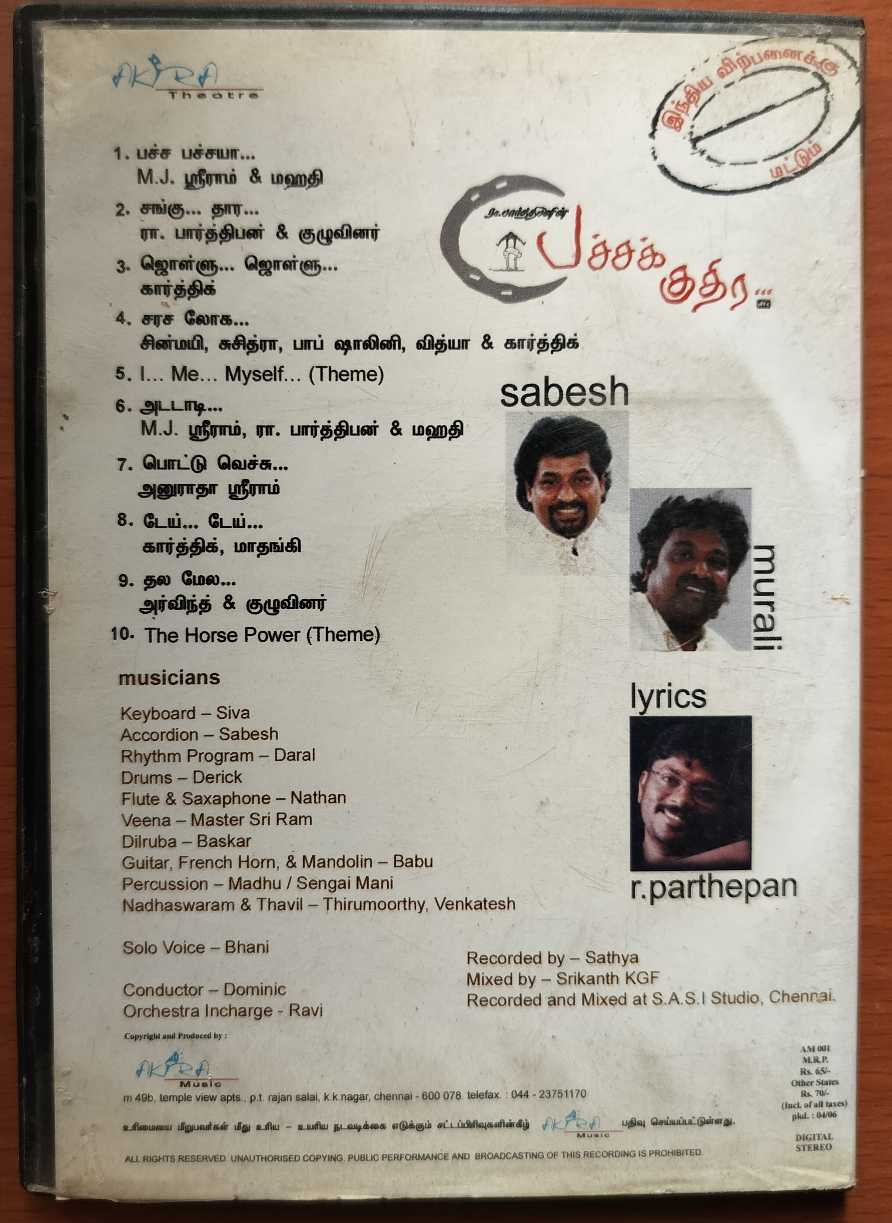 AKIRA
Theatre
இந்திய விற்பனைக்கு
மட்டும்
1. பச்ச பச்சயா...
M.J. ஸ்ரீராம் & மஹதி
2. சங்கு... தார...
ரா. பார்த்திபன் & குழுவினர்
3. ஜொள்ளு... ஜொள்ளு...
கார்த்திக்
4. சரச லோக...
சின்மயி, சுசித்ரா, பாப் ஷாலினி, வித்யா & கார்த்திக்
5. I... Me... Myself... (Theme)
6. அடடாடி...
M.J. ஸ்ரீராம், ரா. பார்த்திபன் & மஹதி
7. பொட்டு வெச்சு...
அனுராதா ஸ்ரீராம்
8. டேய்... டேய்...
கார்த்திக், மாதங்கி
9. தல மேல...
அர்விந்த் & குழுவினர்
10. The Horse Power (Theme)
ரா.பார்த்திபனின்
பச்சக்
குதிர...
sabesh
murali
lyrics
r.parthepan
musicians
Keyboard – Siva
Accordion – Sabesh
Rhythm Program – Daral
Drums – Derick
Flute & Saxaphone – Nathan
Veena – Master Sri Ram
Dilruba – Baskar
Guitar, French Horn, & Mandolin – Babu
Percussion – Madhu / Sengai Mani
Nadhaswaram & Thavil – Thirumoorthy, Venkatesh
Solo Voice – Bhani
Conductor – Dominic
Orchestra Incharge - Ravi
Recorded by – Sathya
Mixed by – Srikanth KGF
Recorded and Mixed at S.A.S.I Studio, Chennai.
Copyright and Produced by :
AKIRA
Music
m 49b, temple view apts., p.t. rajan salai, k.k.nagar, chennai - 600 078. telefax. : 044 - 23751170
உரிமையை மீறுபவர்கள் மீது உரிய – உயரிய நடவடிக்கை எடுக்கும் சட்டப்பிரிவுகளின்கீழ் AKIRA Music பதிவு செய்யப்பட்டுள்ளது.
ALL RIGHTS RESERVED. UNAUTHORISED COPYING, PUBLIC PERFORMANCE AND BROADCASTING OF THIS RECORDING IS PROHIBITED.
AM 001
M.R.P.
Rs. 65/-
Other States
Rs. 70/-
(Incl. of all taxes)
pkd. : 04/06
DIGITAL
STEREO